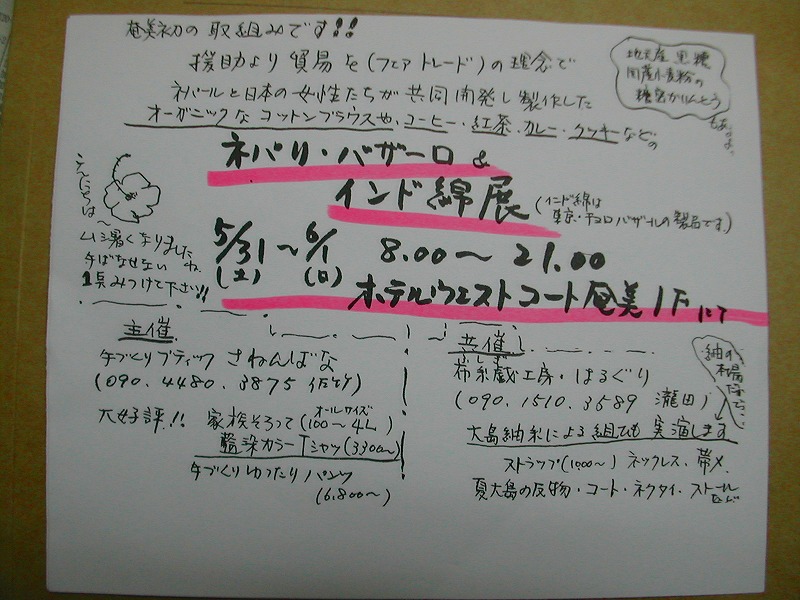 奄美初の取組みです!!
援助より貿易を(フェアトレード)の理念で
ネパールと日本の女性たちが共同開発し製作した
オーガニックなコットンブラウスや、コーヒー・紅茶、カレー・クッキーなどの
地元産黒糖
国産小麦粉の
糖蜜かりんとう
もあるよ。
ネパリ・バザーロ &
インド綿展
(インド綿は
東京・チョロバザールの製品です。)
5/31(土)~6/1(日) 8.00~21.00
ホテルウエストコート奄美1Fにて
こんにちは~
ムシ暑くなりましたね
手ばなせない
1点みつけて下さい!!
主催
手づくりブティック さねんばな
(090.4480.3875
大好評!! 家族そろって(オールサイズ 100~4L)
藍染カラーTシャツ(3300~)
手づくりゆったりパンツ
(6.800~)
共催
布糸戯工房・はるぐり
(090.1510.3589 瀧田)
大島紬糸による組ひも実演します
ストラップ(1000~) ネックレス、帯〆
夏大島の反物・コート・ネクタイ・ストールなど